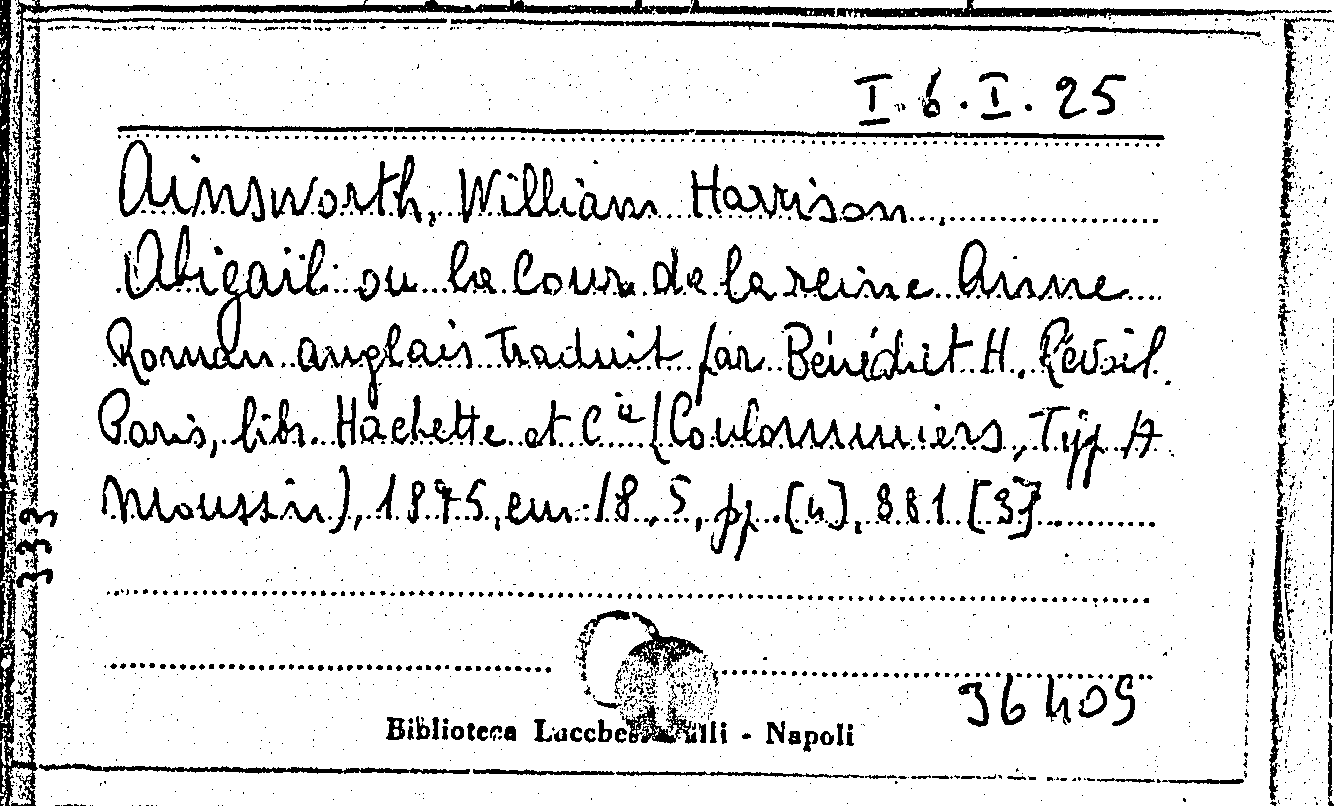 I.6.I.25
Ainsworth, William Harrison.
Abigail ou la Cour de la reine Anne
Roman anglais traduit par Bénédict H. Révoil.
Paris, lib. Hachette et Cie (Coulommiers, Typ A
Moussin), 1875, cm. 18,5, pp. [4], 381 [3].
333
36409
Biblioteca Lucchesi Palli - Napoli